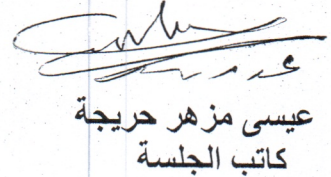 عيسى مزهر حريجة
كاتب الجلسة